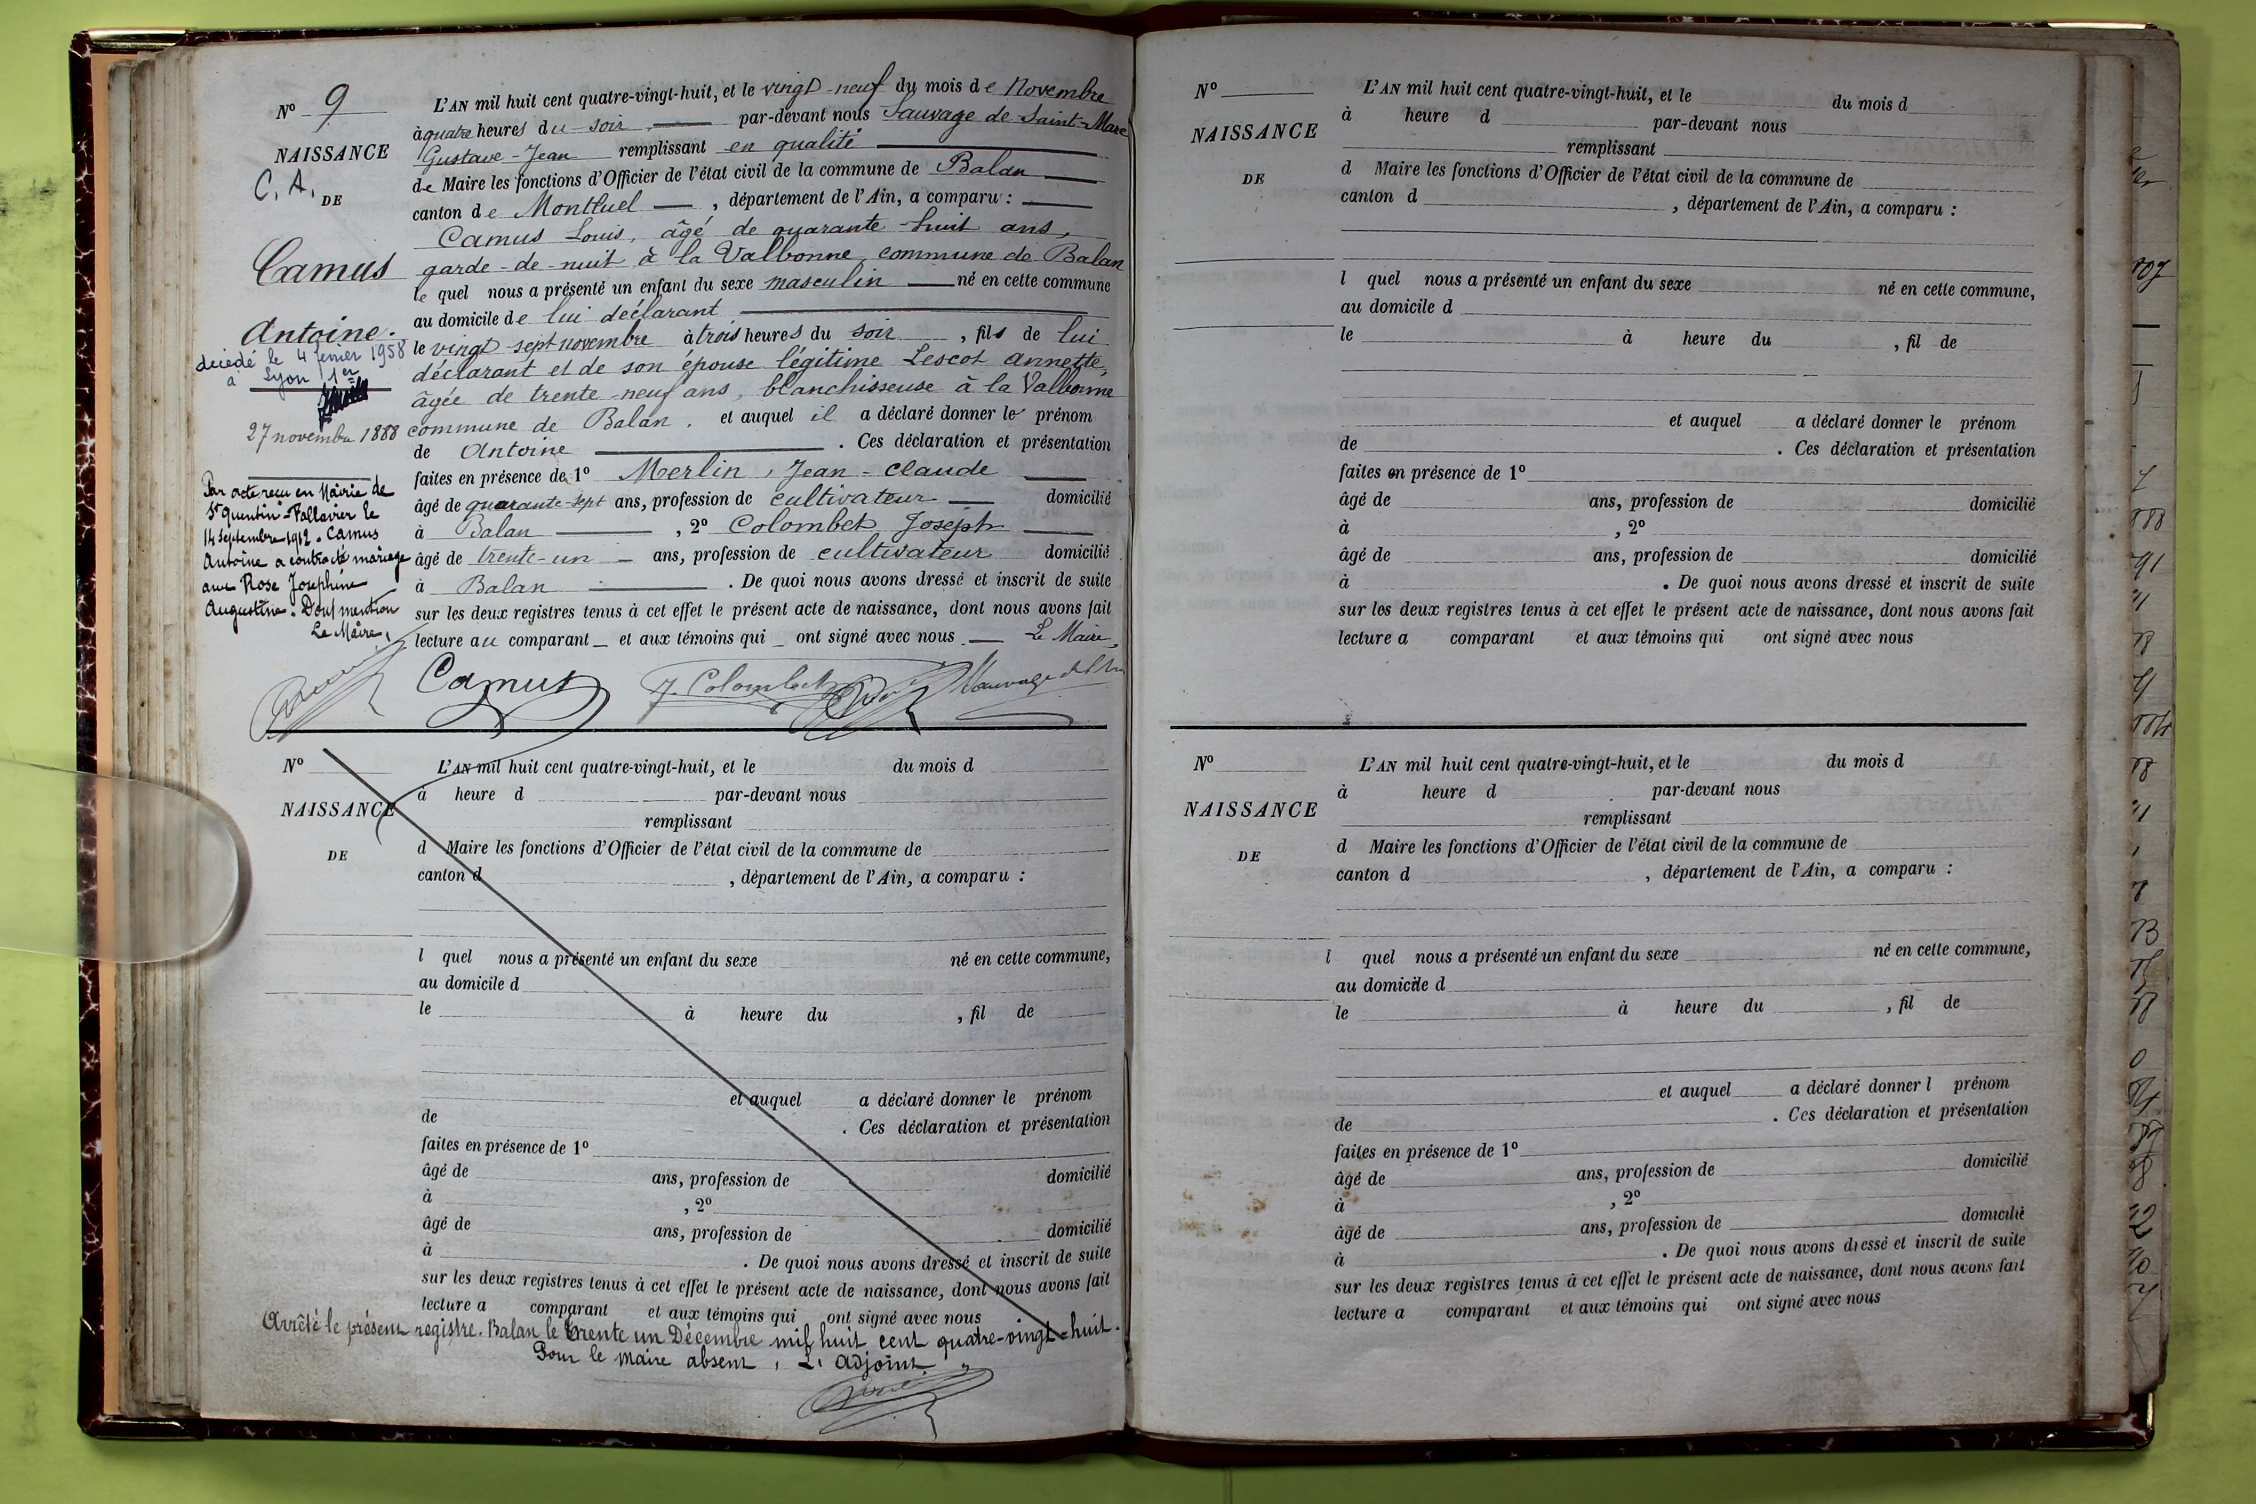 N° 9
NAISSANCE
C. A. DE
Camus
Antoine.
décédé le 4 fevrier 1958
à Lyon 1er
27 novembre 1888
Par acte reçu en Mairie de
St Quentin-Fallavier le
14 Septembre 1912. Camus
Antoine a contracté mariage
avec Rose Joséphine
Augustine. Dont mention
Le Maire,
L'AN mil huit cent quatre-vingt-huit, et le vingt-neuf du mois de Novembre
à quatre heures du soir par-devant nous Sauvage de Saint-Marc
Gustave-Jean remplissant en qualité
de Maire les fonctions d'Officier de l'état civil de la commune de Balan
canton de Montluel, département de l'Ain, a comparu :
Camus Louis, âgé de quarante-huit ans,
garde-de-nuit à la Valbonne, commune de Balan
le quel nous a présenté un enfant du sexe masculin né en cette commune
au domicile de lui déclarant
le vingt sept novembre à trois heures du soir, fils de lui
déclarant et de son épouse légitime Lescot Annette,
âgée de trente-neuf ans, blanchisseuse à la Valbonne
commune de Balan. et auquel il a déclaré donner le prénom
de Antoine. Ces déclaration et présentation
faites en présence de 1° Merlin, Jean-Claude
âgé de quarante-sept ans, profession de cultivateur domicilié
à Balan, 2° Colombet Joseph
âgé de trente-un ans, profession de cultivateur domicilié
à Balan. De quoi nous avons dressé et inscrit de suite
sur les deux registres tenus à cet effet le présent acte de naissance, dont nous avons fait
lecture au comparant et aux témoins qui ont signé avec nous. Le Maire,
Camus J. Colombet Sauvage de St M
N°
NAISSANCE
DE
L'AN mil huit cent quatre-vingt-huit, et le du mois d
à heure d par-devant nous
remplissant
d Maire les fonctions d'Officier de l'état civil de la commune de
canton d , département de l'Ain, a comparu :
l quel nous a présenté un enfant du sexe né en cette commune,
au domicile d
le à heure du , fil de
et auquel a déclaré donner le prénom
de . Ces déclaration et présentation
faites en présence de 1°
âgé de ans, profession de domicilié
à , 2°
âgé de ans, profession de domicilié
à . De quoi nous avons dressé et inscrit de suite
sur les deux registres tenus à cet effet le présent acte de naissance, dont nous avons fait
lecture a comparant et aux témoins qui ont signé avec nous
Arrêté le présent registre. Balan le trente un Décembre mil huit cent quatre-vingt-huit.
Pour le maire absent, L'adjoint
N°
NAISSANCE
DE
L'AN mil huit cent quatre-vingt-huit, et le du mois d
à heure d par-devant nous
remplissant
d Maire les fonctions d'Officier de l'état civil de la commune de
canton d , département de l'Ain, a comparu :
l quel nous a présenté un enfant du sexe né en cette commune,
au domicile d
le à heure du , fil de
et auquel a déclaré donner le prénom
de . Ces déclaration et présentation
faites en présence de 1°
âgé de ans, profession de domicilié
à , 2°
âgé de ans, profession de domicilié
à . De quoi nous avons dressé et inscrit de suite
sur les deux registres tenus à cet effet le présent acte de naissance, dont nous avons fait
lecture a comparant et aux témoins qui ont signé avec nous
N°
NAISSANCE
DE
L'AN mil huit cent quatre-vingt-huit, et le du mois d
à heure d par-devant nous
remplissant
d Maire les fonctions d'Officier de l'état civil de la commune de
canton d , département de l'Ain, a comparu :
l quel nous a présenté un enfant du sexe né en cette commune,
au domicile d
le à heure du , fil de
et auquel a déclaré donner l prénom
de . Ces déclaration et présentation
faites en présence de 1°
âgé de ans, profession de domicilié
à , 2°
âgé de ans, profession de domicilié
à . De quoi nous avons dressé et inscrit de suite
sur les deux registres tenus à cet effet le présent acte de naissance, dont nous avons fait
lecture a comparant et aux témoins qui ont signé avec nous